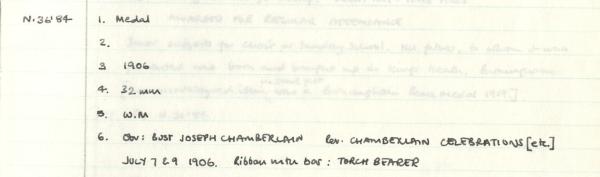 N.36'84 1. Medal
2.
3 1906
4. 32 mm
5. W.M
6. Obv: BUST JOSEPH CHAMBERLAIN Rev. CHAMBERLAIN CELEBRATIONS [etc.]
JULY 7 & 9 1906. Ribbon with bar: TORCH BEARER